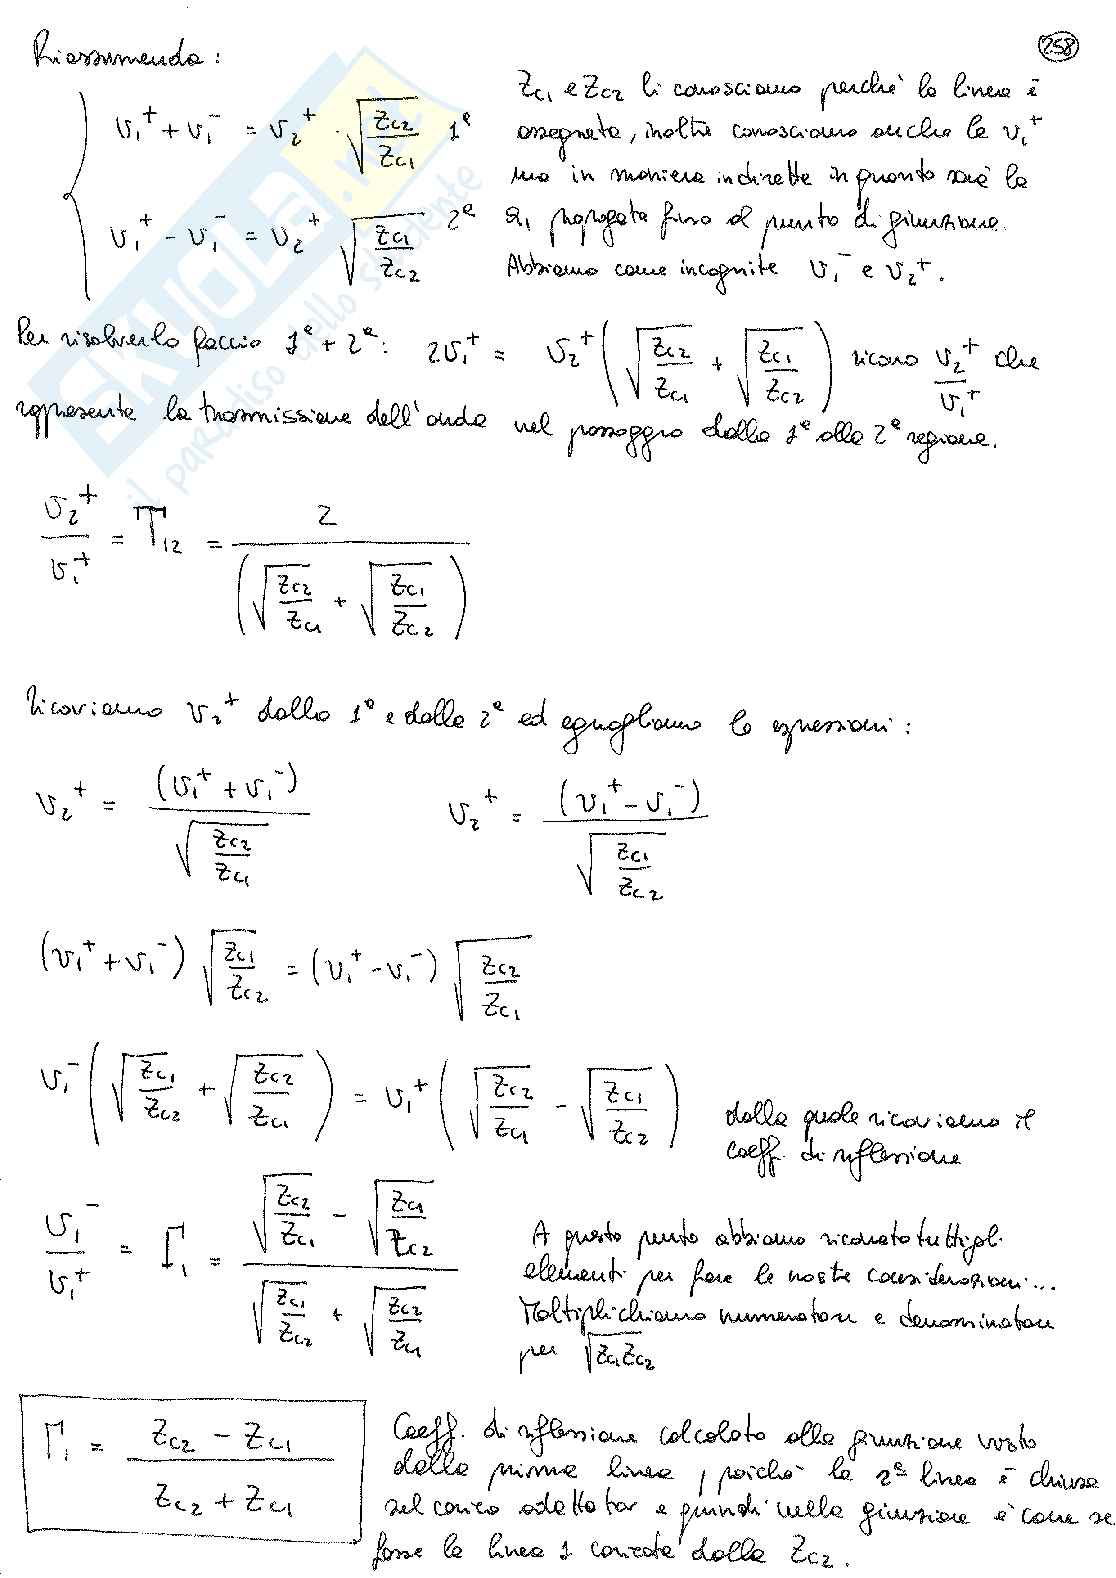 258
Riassumendo:
v₁⁺ + v₁⁻ = v₂⁺ · √(Zc2/Zc1) 1ª
v₁⁺ - v₁⁻ = v₂⁺ √(Zc1/Zc2) 2ª
Zc1 e Zc2 li conosciamo perché la linea è
assegnata, inoltre conosciamo anche la v₁⁺
ma in maniera indiretta in quanto sarà la
a₁ propagata fino al punto di giunzione.
Abbiamo come incognite v₁⁻ e v₂⁺.
Per risolverlo faccio 1ª + 2ª: 2v₁⁺ = v₂⁺ (√(Zc2/Zc1) + √(Zc1/Zc2)) ricavo v₂⁺/v₁⁺ che
rappresenta la trasmissione dell'onda nel passaggio dalla 1ª alla 2ª regione.
v₂⁺/v₁⁺ = T₁₂ = 2/(√(Zc2/Zc1) + √(Zc1/Zc2))
Ricaviamo v₂⁺ dalla 1ª e dalla 2ª ed eguagliamo le espressioni:
v₂⁺ = (v₁⁺ + v₁⁻)/√(Zc2/Zc1) v₂⁺ = (v₁⁺ - v₁⁻)/√(Zc1/Zc2)
(v₁⁺ + v₁⁻) √(Zc1/Zc2) = (v₁⁺ - v₁⁻) √(Zc2/Zc1)
v₁⁻ (√(Zc1/Zc2) + √(Zc2/Zc1)) = v₁⁺ (√(Zc2/Zc1) - √(Zc1/Zc2))
dalla quale ricaviamo il
coeff. di riflessione
v₁⁻/v₁⁺ = Γ₁ = (√(Zc2/Zc1) - √(Zc1/Zc2))/(√(Zc1/Zc2) + √(Zc2/Zc1))
A questo punto abbiamo ricavato tutti gli
elementi per fare le nostre considerazioni...
Moltiplichiamo numeratore e denominatore
per √(Zc1Zc2)
Γ₁ = (Zc2 - Zc1)/(Zc2 + Zc1)
Coeff. di riflessione calcolato alla giunzione visto
dalla prima linea, poiché la 2ª linea è chiusa
sul carico adattator e quindi nella giunzione è come se
fosse la linea 1 caricata dalla Zc2.
SKUOLA.net
il paradiso dello studente